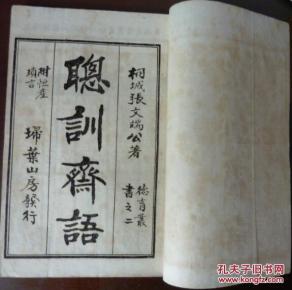 桐城張文端公著
德育叢
書之二
聰訓齋語
附恒產
瑣言
埽葉山房發行
孔夫子旧书网